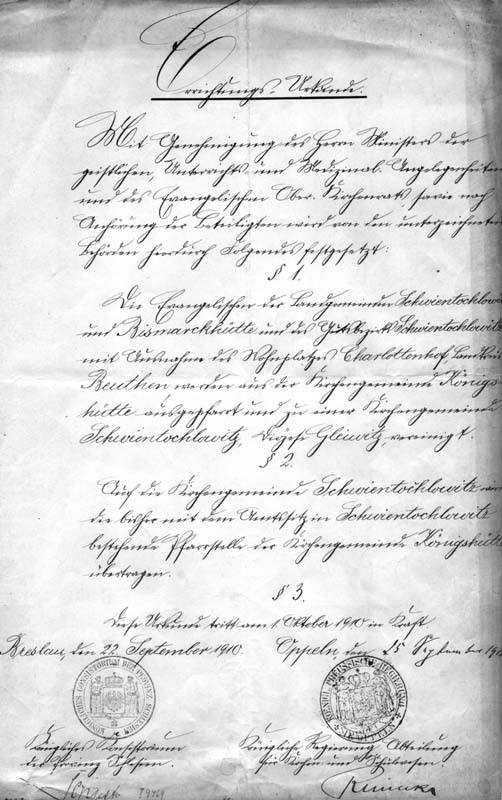 Errichtungs-Urkunde.
Mit Genehmigung des Herrn Ministers der
geistlichen, Unterrichts- und Medizinal-Angelegenheiten
und des Evangelischen Ober-Kirchenrats, sowie nach
Anhörung der Beteiligten wird von den unterzeichneten
Behörden hierdurch Folgendes festgesetzt:
§ 1.
Die Evangelischen der Landgemeinden Schwientochlowitz
und Bismarckhütte und des Gutsbezirks Schwientochlowitz
mit Ausnahme des Wohnplatzes Charlottenhof, Landkreis
Beuthen werden aus der Kirchengemeinde Königs-
hütte ausgepfarrt und zu einer Kirchengemeinde
Schwientochlowitz, Diözese Gleiwitz, vereinigt.
§ 2.
Auf die Kirchengemeinde Schwientochlowitz wird
die bisher mit dem Amtssitz in Schwientochlowitz
bestehende Pfarrstelle der Kirchengemeinde Königshütte
übertragen.
§ 3.
Diese Urkunde tritt am 1. Oktober 1910 in Kraft.
Breslau, den 22. September 1910. Oppeln, den 25 September 1910
Königliches Konsistorium Königliche Regierung Abteilung
der Provinz Schlesien. für Kirchen und Schulwesen